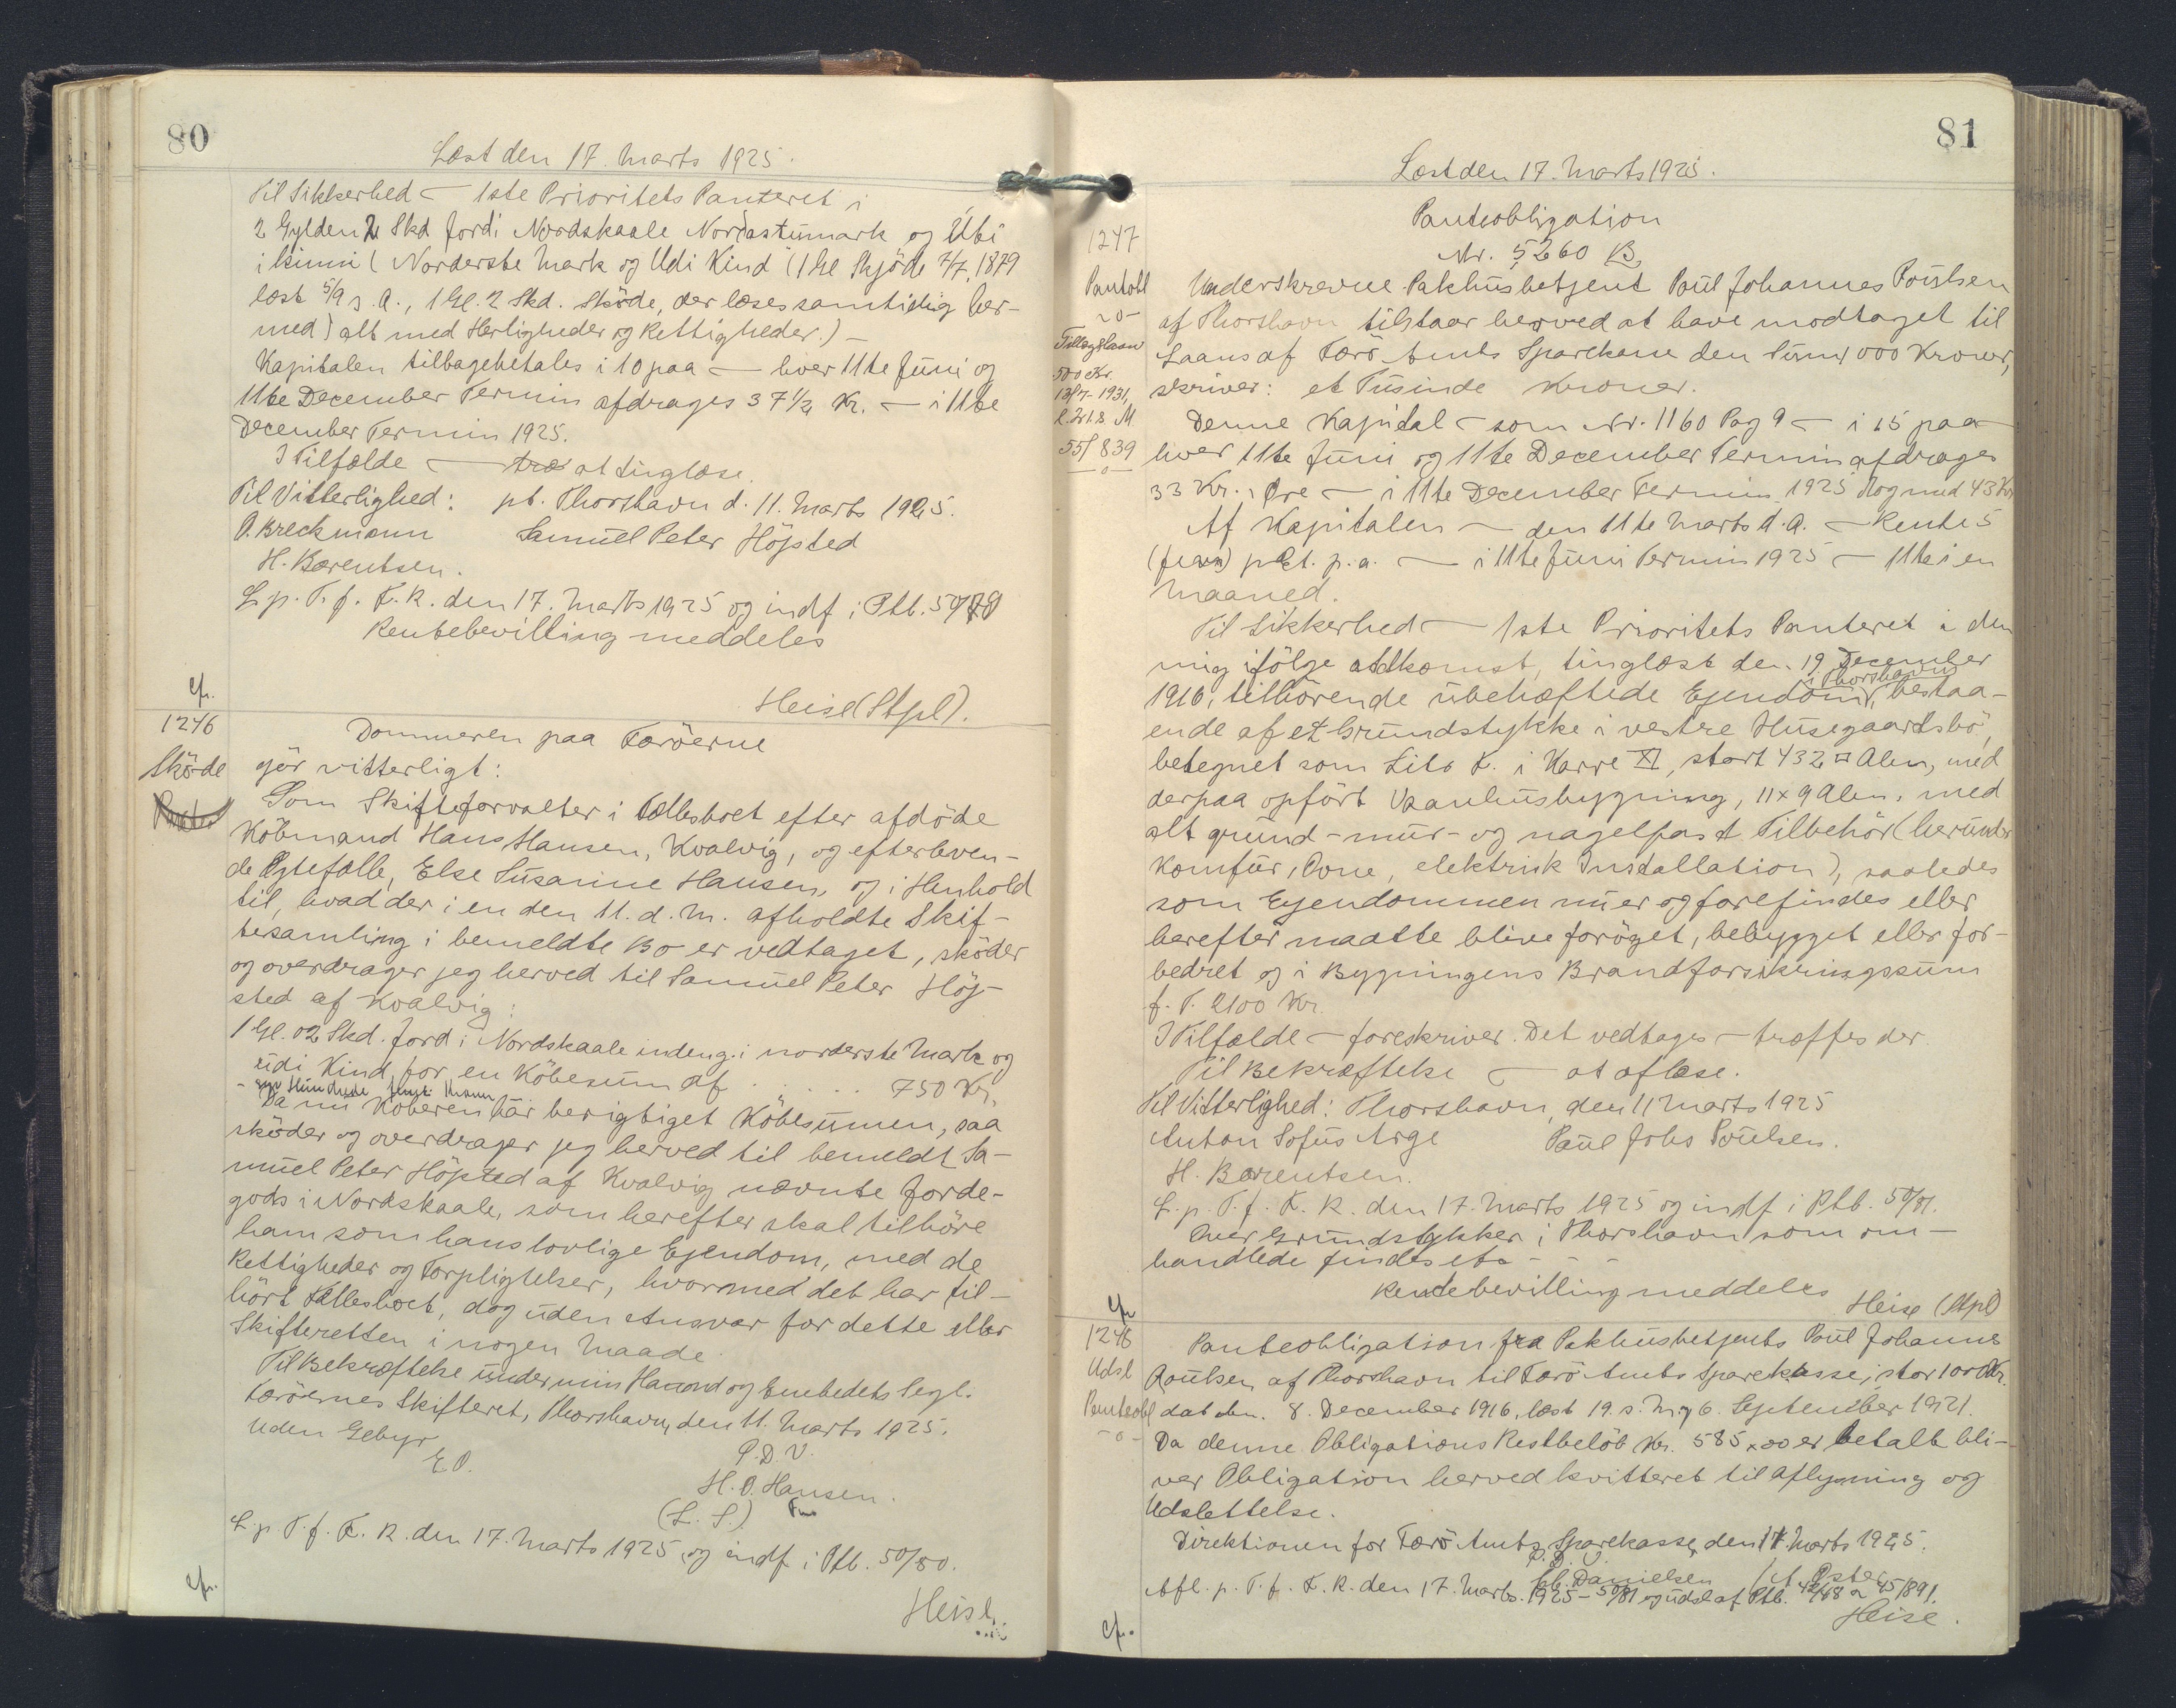 80
Læst den 17. Marts 1925.
Til Sikkerhed – 1ste Prioritets Panteret i
2 Gylden 2 Skd Jord i Nordskaale Norðastumark og Úti
i Kinni ( Norderste Mark og Udi Kind (1 Gl Skjöde 7/7 1879
læst 5/9 s.A., 1 Gl. 2 Skd. Sköde, der læses samtidig her-
med) alt med Herligheder og Rettigheder.) –
Kapitalen tilbagebetales i 10 paa – hver 11te Juni og
11te December Termin afdrages 37 1/2 Kr. – i 11te
December Termin 1925.
I Tilfælde – træ at tinglæse.
Til Vitterlighed: pt. Thorshavn d. 11. Marts 1925.
O. Breckmann Samuel Peter Höjsted
H. Barentsen.
L.p. T. f. F. R. den 17. Marts 1925 og indf i Ptb. 50/79
Rentebevilling meddeles
Heise (Stpl).
cfr.
1246
Sköde
Dommeren paa Færöerne
gör vitterligt:
Som Skifteforvalter i Fællesboet efter afdöde
Köbmand Hans Hansen, Kvalvig, og efterleven-
de Ægtefælle, Else Susanne Hansen, og i Henhold
til, hvad der i en den 11. d. M. afholdte Skif-
tesamling i bemeldte Bo er vedtaget, sköder
og overdrager jeg herved til Samuel Peter Höj-
sted af Kvalvig:
1 Gl. 02 Skd. Jord i Nordskaale indeng. i norderste Mark og
udi Kind, for en Köbesum af . . . . . . 750 Kr.
– syv Hundrede femti Kroner
Da nu Köberen har berigtiget Köbesummen, saa
sköder og overdrager jeg herved til bemeldt Sa-
muel Peter Höjsted af Kvalvig nævnte Jorde-
gods i Nordskaale, som herefter skal tilhöre
ham som hans lovlige Ejendom, med de
Rettigheder og Forpligtelser, hvormed det har til-
hört Fællesboet, dog uden Ansvar for dette eller
Skifteretten i nogen Maade.
Til Bekræftelse under min Haand og Embedets Segl.
Færöernes Skifteret, Thorshavn, den 11. Marts 1925.
Uden Gebyr P.D.V.
E.O. H. O. Hansen.
(L. S.) Fm
L.p. T. f. F. R. den 17. Marts 1925 og indf i Ptb. 50/80.
cfr. Heise
81
Læst den 17. Marts 1925.
1247
Pantobl
-o-
Tillægslaan
500 Kr.
55/839
-o-
Panteobligation
Nr. 5260 B
Underskrevne Pakhusbetjent Poul Johannes Poulsen
af Thorshavn tilstaar herved at have modtaget til
Laans af Færö Amts Sparekasse den Sum 1000 Kroner,
skriver: et Tusinde Kroner.
Denne Kapital – som Nr. 1160 Pag 9 – i 15 paa
hver 11te Juni og 11te December Termin afdrages
33 Kr. , Öre – i 11te December Termin 1925 dog med 43 Kr
Af Kapitalen – den 11te Marts d.A. – Rente 5
(fem) pCt. p.a. – i 11te Juni Termin 1925 – 11te i en
Maaned.
Til Sikkerhed – 1ste Prioritets Panteret i den
mig ifölge Adkomst, tinglæst den 19 December
i Thorshavn
1916, tilhörende ubehæftede Ejendom, bestaa-
ende af et Grundstykke i vestre Husegaardsbö,
betegnet som Litr. K. i Karre XI, stort 432 □ Alen, med
derpaa opfört Vaanhusbygning, 11 x 9 Alen, med
alt grund- mur- og nagelfast Tilbehör (herunder
Komfur, Ovne, elektrisk Installation), saaledes
som Ejendommen nu er og forefindes eller
herefter maatte blive foröget, bebygget eller for-
bedret og i Bygningens Brandforsikringssum
f. T. 2100 Kr.
I Tilfælde – foreskriver. Det vedtages – træffes der
Til Bekræftelse – at aflæse.
Til Vitterlighed: Thorshavn, den 11 Marts 1925
Anton Sofus Arge Poul Johs Poulsen.
H. Barentsen.
L.p. T. f. F. R. den 17. Marts 1925 og indf i Ptb. 50/81.
Over Grundstykker i Thorshavn som om-
handlede findes etc - - -
Rentebevilling meddeles
Heise (Stpl)
cfr
1248
Udsl
Panteobl
-o-
Panteobligation fra Pakhusbetjents Poul Johannes
Poulsen af Thorshavn til Færö Amts Sparekasse, stor 1000 Kr.
dat den. 8. December 1916, læst 19. s. M. og 6. September 1921.
Da denne Obligations Restbelöb Kr. 585 x 00 er betalt bli-
ver Obligation herved kvitteret til Aflysning og
Udslettelse.
Direktionen for Færö Amts Sparekasse, den 17. Marts 1925.
P.D.V.
Danielsen / A Öster
Afl. p. T. f. F. R. den 17. Marts. 1925 – 50/81 og udsl af Ptb. 42/468 & 45/891.
cfr. Heise.